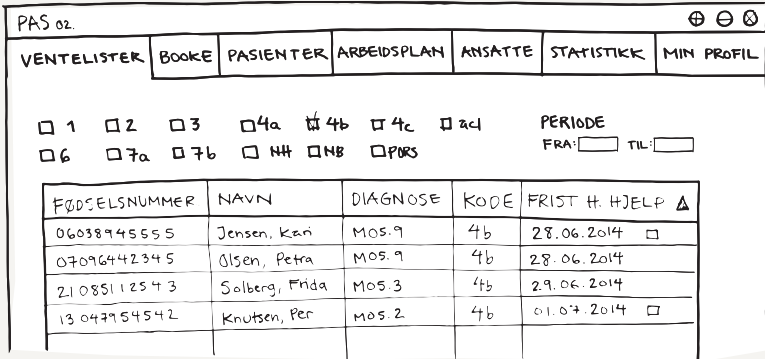 PAS 02.
VENTELISTER BOOKE PASIENTER ARBEIDSPLAN ANSATTE STATISTIKK MIN PROFIL
1 2 3 4a 4b 4c acl PERIODE
FRA: TIL:
6 7a 7b NH NB PORS
FØDSELSNUMMER NAVN DIAGNOSE KODE FRIST H. HJELP
06038945555 Jensen, Kari M05.9 4b 28.06.2014
07096442345 Olsen, Petra M05.9 4b 28.06.2014
21085112543 Solberg, Frida M05.3 4b 29.06.2014
13047954542 Knutsen, Per M05.2 4b 01.07.2014